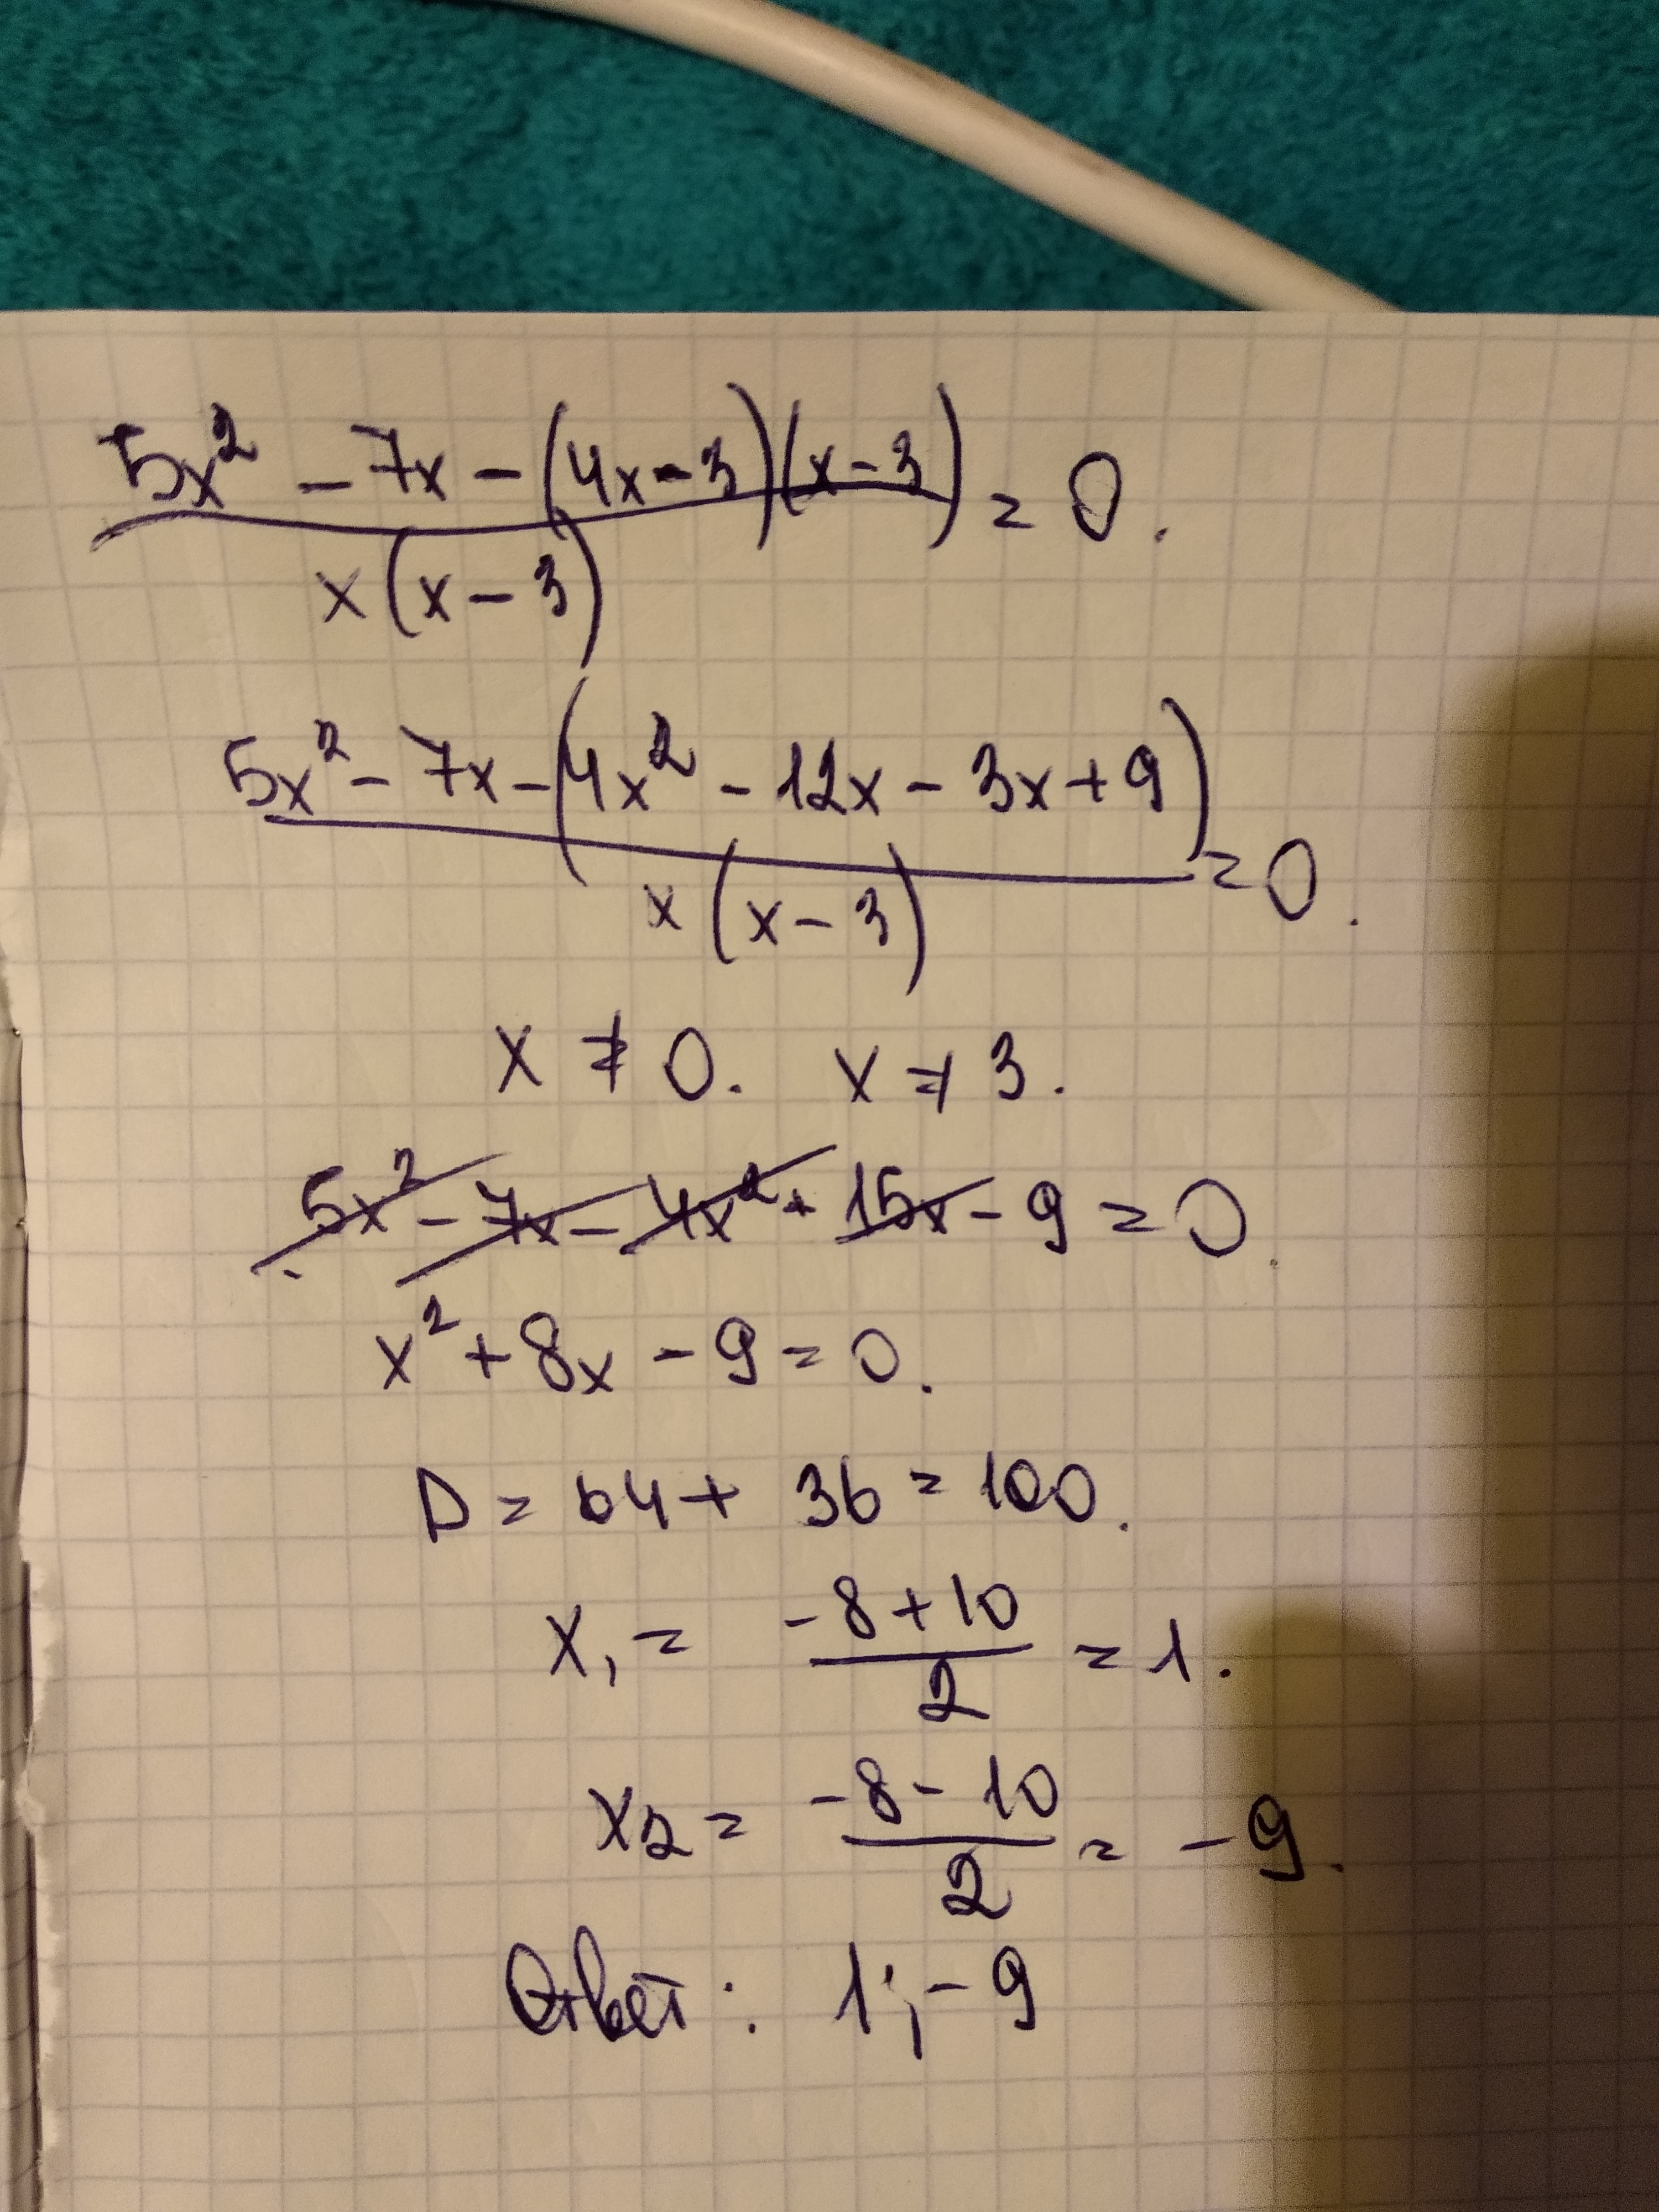 5x² - 7x - (4x - 3)(x - 3) = 0.
x(x - 3)
5x² - 7x - (4x² - 12x - 3x + 9) = 0.
x(x - 3)
x ≠ 0. x ≠ 3.
5x² - 7x - 4x² + 15x - 9 = 0.
x² + 8x - 9 = 0.
D = 64 + 36 = 100.
x₁ = -8 + 10 = 1.
2
x₂ = -8 - 10 = -9.
2
Ответ: 1; -9